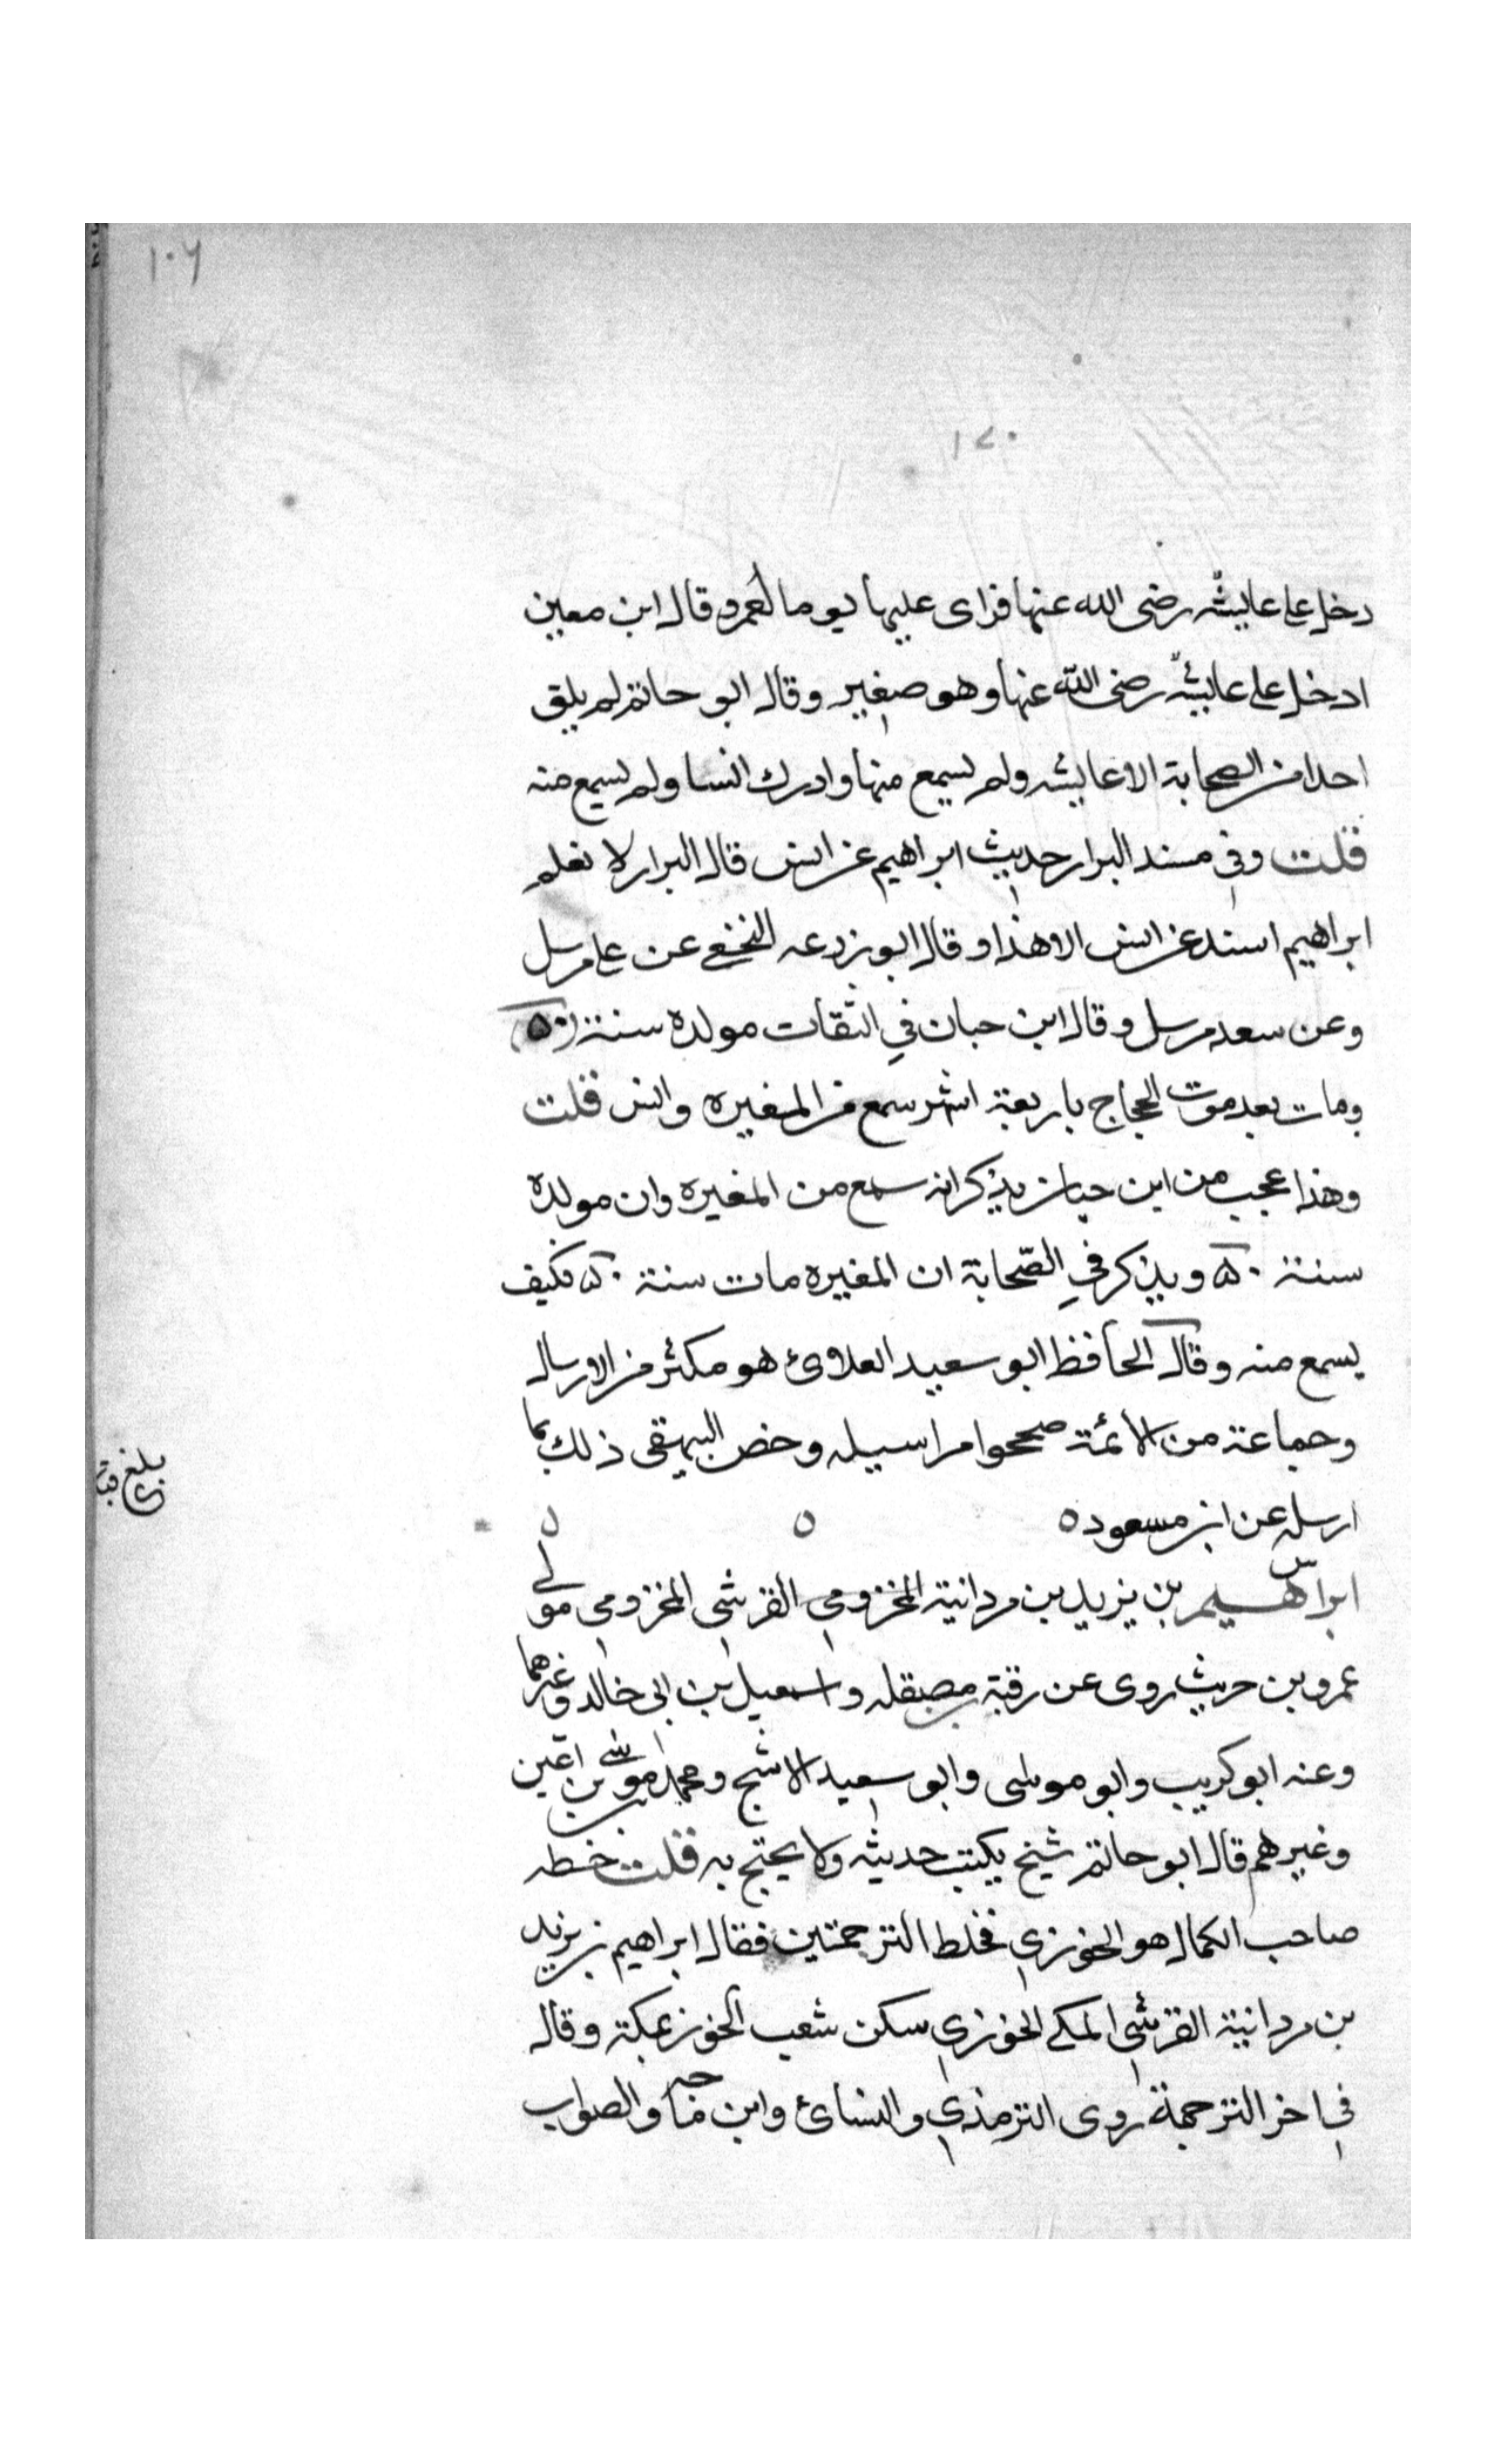 ١٠٦
١٢٠
دخل على عايشه رضى الله عنها فراى عليها يوما لعمرو قال ابن معين
ادخل على عايشه رضى الله عنها وهو صغير وقال ابو حاتم لم يلق
احدا من الصحابة الا عايشه ولم يسمع منها وادرك انسا ولم يسمع منه
قلت وفي مسند البزار حديث ابراهيم عن انس قال البزار لا نعلم
ابراهيم اسند عن انس الا هذا وقال ابو زرعه النخعي عن على مرسل
وعن سعد مرسل وقال ابن حبان في الثقات مولده سنة (٥٠)
ومات بعد موت الحجاج باربعة اشهر سمع من المغيره وانس قلت
وهذا عجب من ابن حبان يذكر انه سمع من المغيره وان مولده
سنة ٥٠ ويذكر في الصّحابة ان المغيره مات سنة ٥٠ فكيف
يسمع منه وقال الحافظ ابو سعيد العلاوئ هو مكثر من الارسال
وجماعة من الائمة صححوا مراسيله وخص البيهقى ذلك بما
ارسله عن ابن مسعود ه ه ه
بلغ
ابراهيم بن يزيد بن مردانبة المخزومي القرشى المخزومي مولى
عمرو بن حريث روى عن رقبة بن مصقله واسمعيل بن ابى خالد وغيرهما
وعنه ابو كريب وابو موسى وابو سعيد الاشج ومحمد بن موسى بن اعين
وغيرهم قال ابو حاتم شيخ يكتب حديثه ولا يحتج به قلت خطه
صاحب الكمال هو الخوزي فخلط الترجمتين فقال ابراهيم بن يزيد
بن مردانبة القرشى المكى الخوزي سكن شعب الخوز بمكة وقال
في اخر الترجمة روى الترمذي والنسائ وابن ماجه والصواب